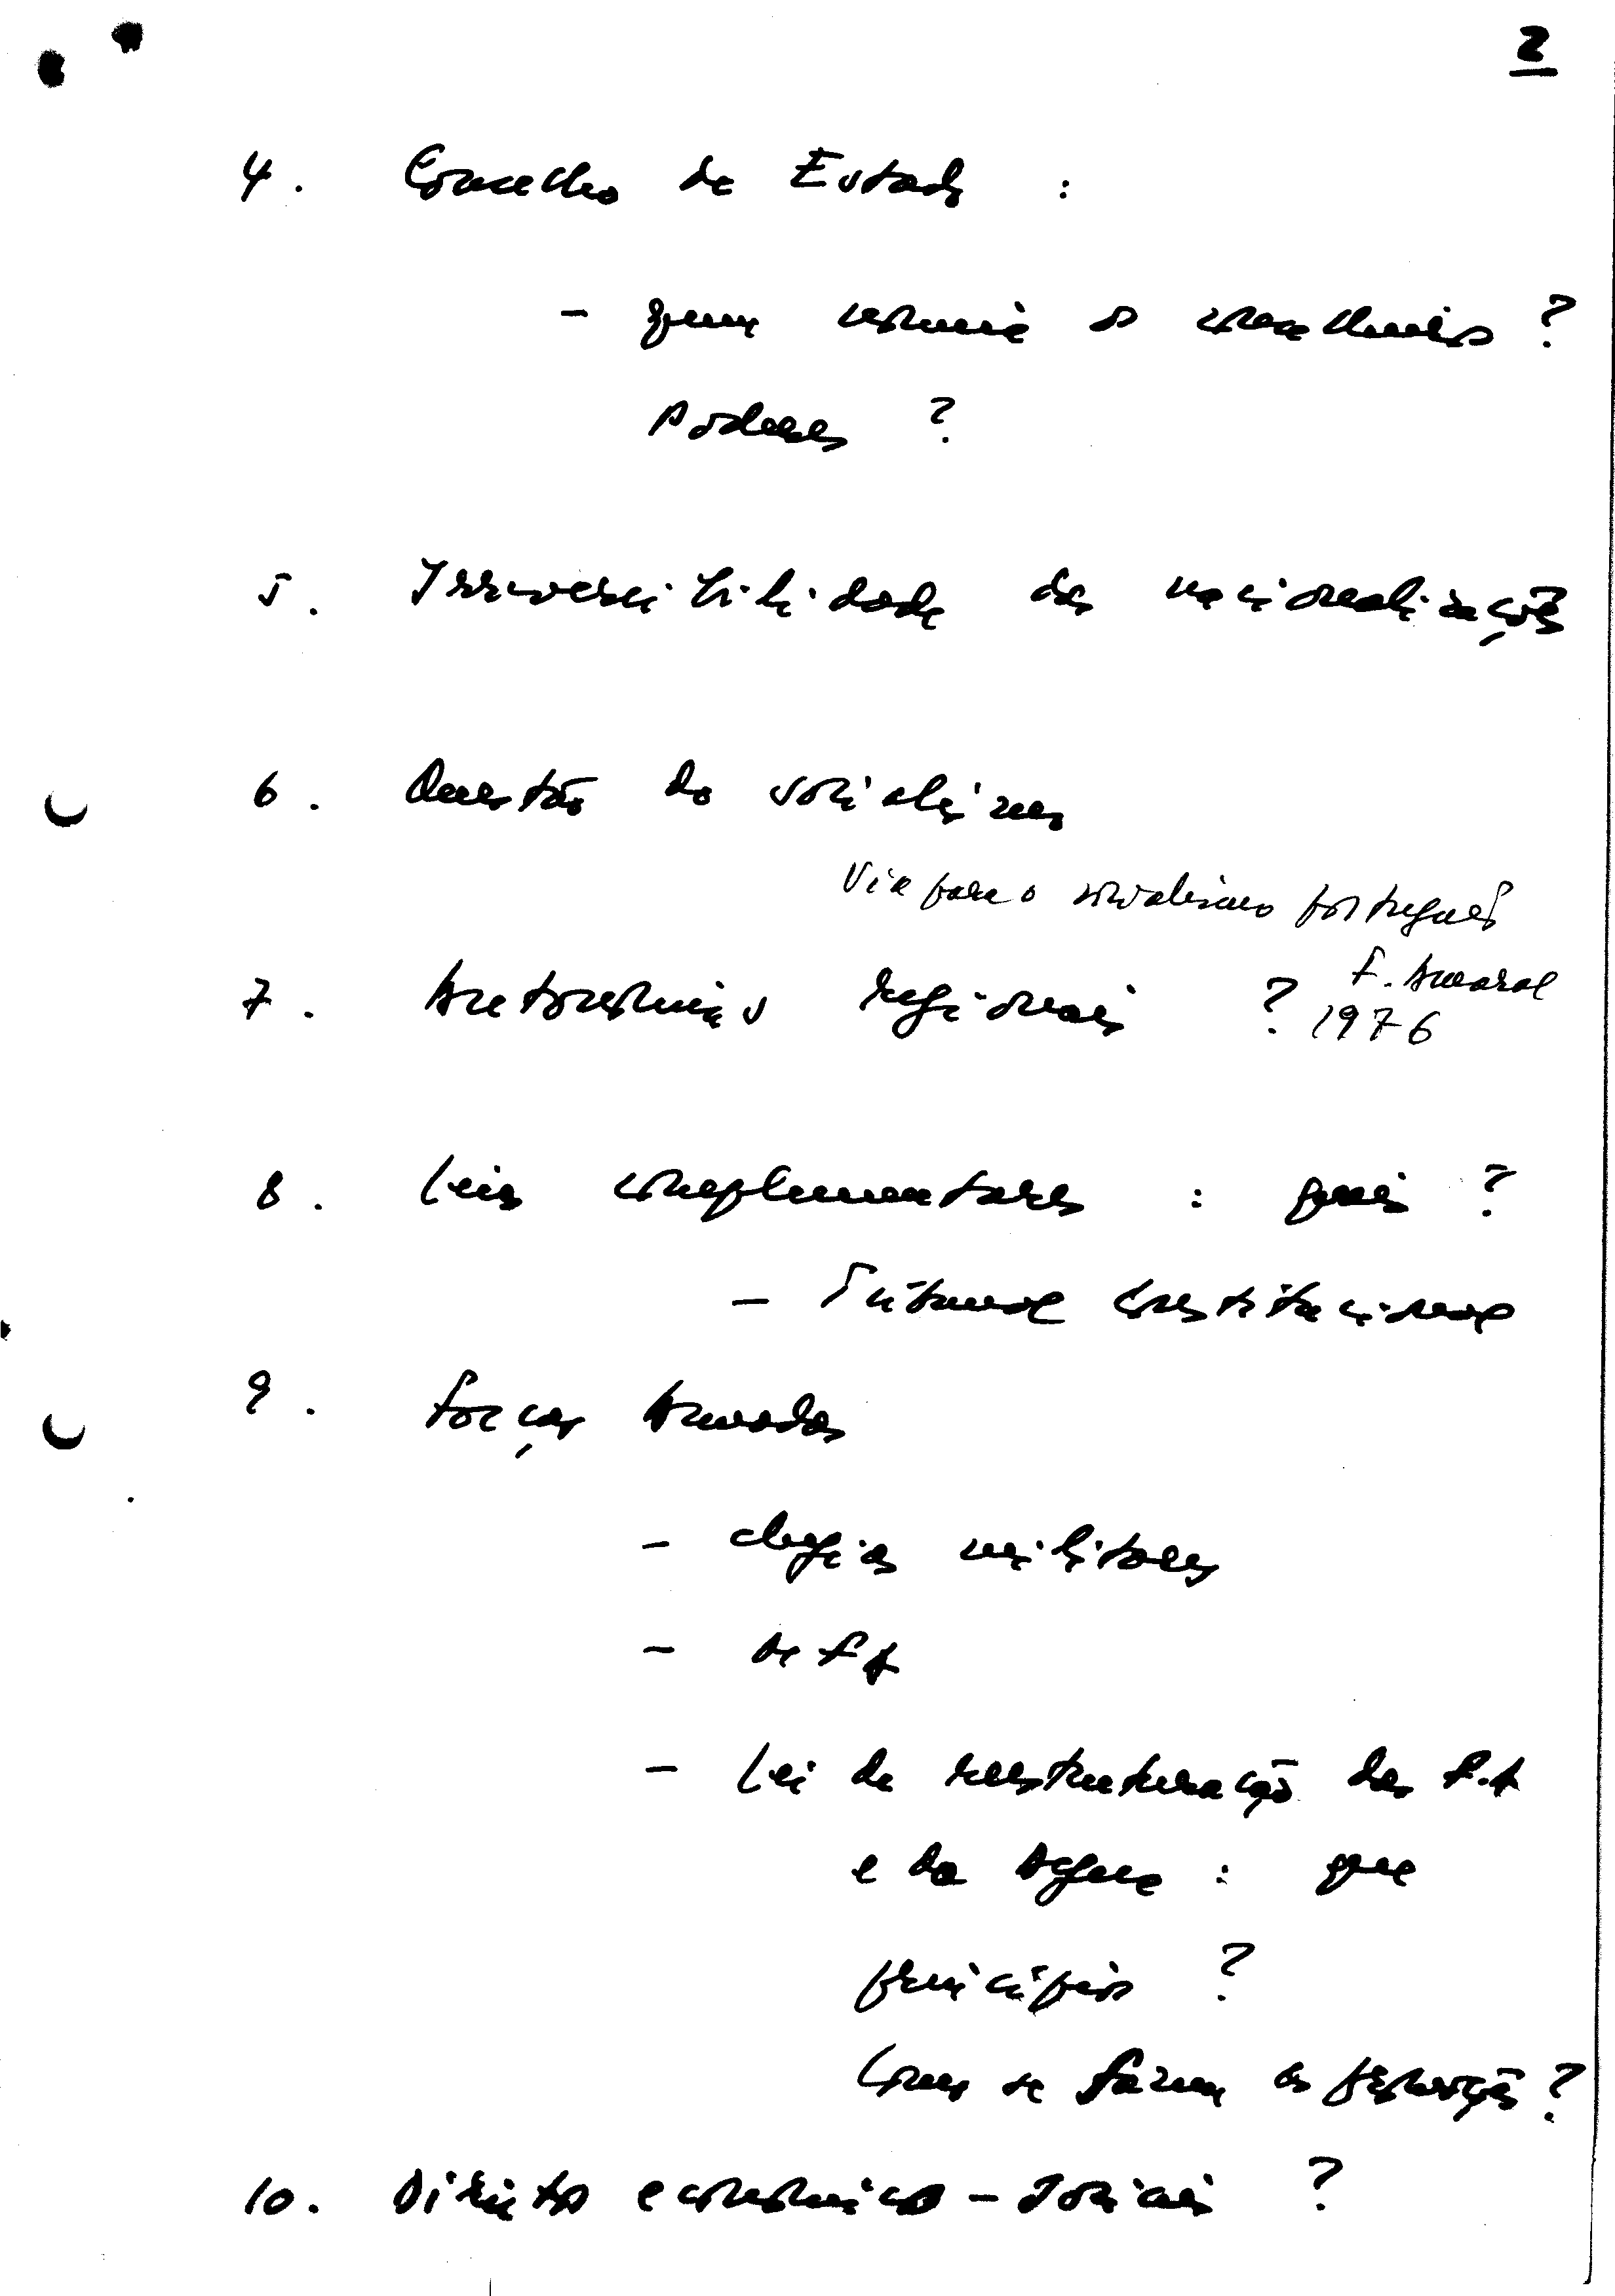 2
4. Conselho de Estado :
- quem nomeia os conselheiros ?
Poderes ?
5. Irreversibilidade das nacionalizações
6. Questão do socialismo
Via para o socialismo português
F. Amaral
7. Autonomias regionais ? 1976
8. Leis complementares : quais ?
- Tribunal Constitucional
9. Forças Armadas
- chefias militares
- Lei de reestruturação das F.A
e da Defesa : que
princípios ?
Como se fazem as promoções ?
10. Direitos económicos - Sociais ?